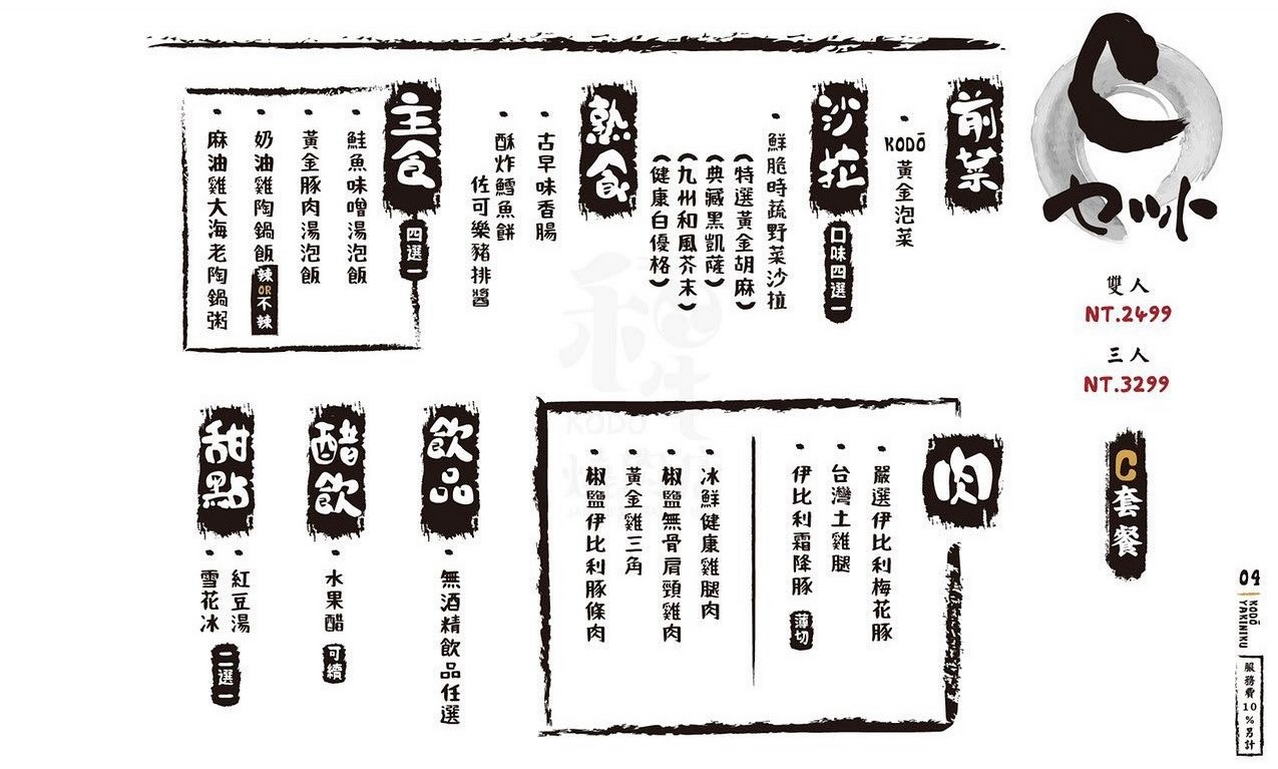 C
セット
雙人
NT.2499
三人
NT.3299
C套餐
前菜
• KODŌ 黃金泡菜
沙拉
口味四選一
• 鮮脆時蔬野菜沙拉
（特選黃金胡麻）
（典藏黑凱薩）
（九州和風芥末）
（健康白優格）
熟食
• 古早味香腸
• 酥炸鱈魚餅
佐可樂豬排醬
主食
四選一
• 鮭魚味噌湯泡飯
• 黃金豚肉湯泡飯
• 奶油雞陶鍋飯 辣OR不辣
• 麻油雞大海老陶鍋粥
肉
• 嚴選伊比利梅花豚
• 台灣土雞腿
• 伊比利霜降豚 薄切
• 冰鮮健康雞腿肉
• 椒鹽無骨肩頸雞肉
• 黃金雞三角
• 椒鹽伊比利豚條肉
飲品
• 無酒精飲品任選
醋飲
• 水果醋 可續
甜點
• 紅豆湯
• 雪花冰
二選一
04
KODŌ
YAKINIKU
服務費10%另計
KODŌ